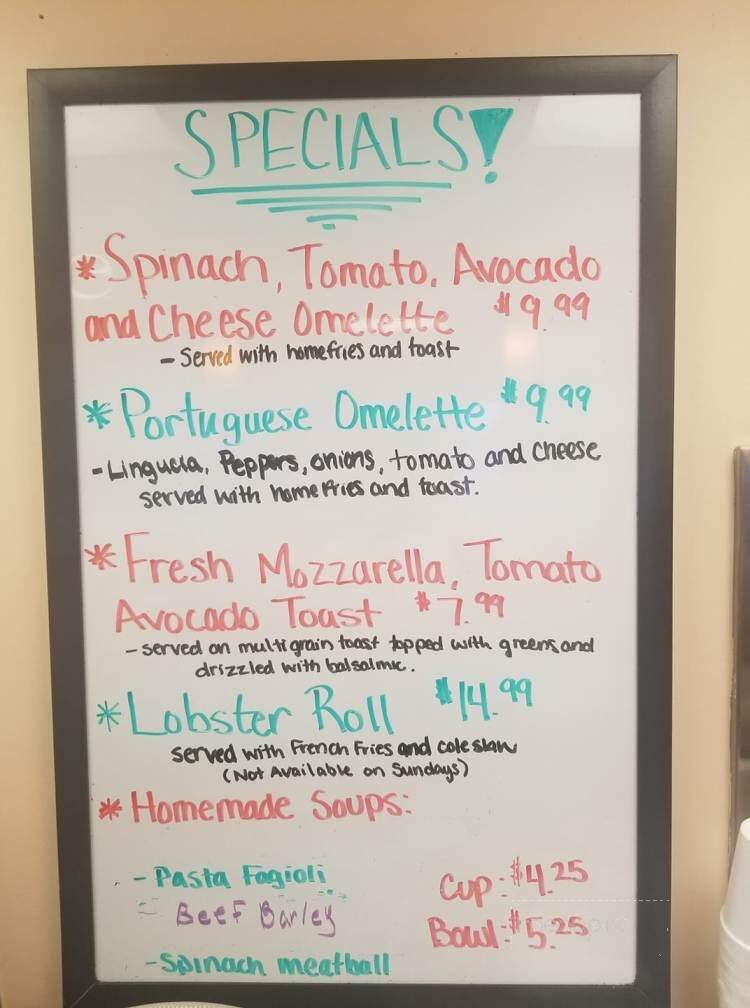 SPECIALS!
* Spinach, Tomato, Avocado
and Cheese Omelette $9.99
- Served with homefries and toast
* Portuguese Omelette $9.99
- Lingucia, Peppers, onions, tomato and cheese
served with homefries and toast.
* Fresh Mozzarella, Tomato
Avocado Toast $7.99
- served on multigrain toast topped with greens and
drizzled with balsalmic.
* Lobster Roll $14.99
served with French Fries and coleslaw
(Not Available on Sundays)
* Homemade Soups:
- Pasta Fagioli Cup: $4.25
- Beef Barley Bowl: $5.25
- Spinach meatball